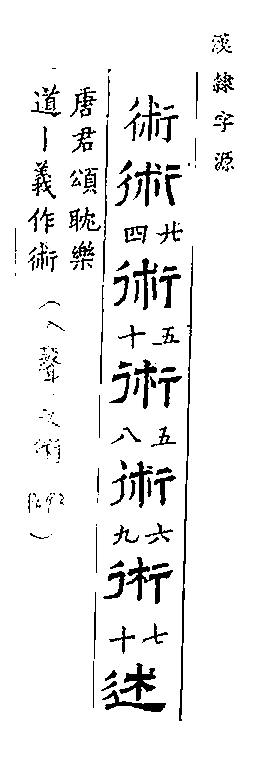 漢隸字源
術術廿四術五十術五八術六九術七十述
唐君頌耽樂
道｜義作術（入聲 術 ）